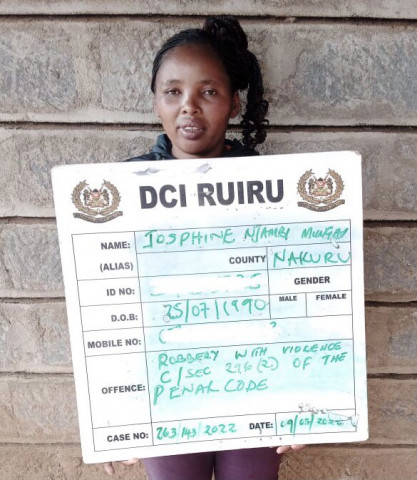 DCI RUIRU
NAME: JOSPHINE NJAMBI
(ALIAS) COUNTY NAKURU
ID NO: GENDER
MALE FEMALE
D.O.B: 25/07/1990
MOBILE NO:
OFFENCE: ROBBERY WITH VIOLENCE
C/SEC 296(2) OF THE
PENAL CODE
CASE NO: 263/143/2022 DATE: